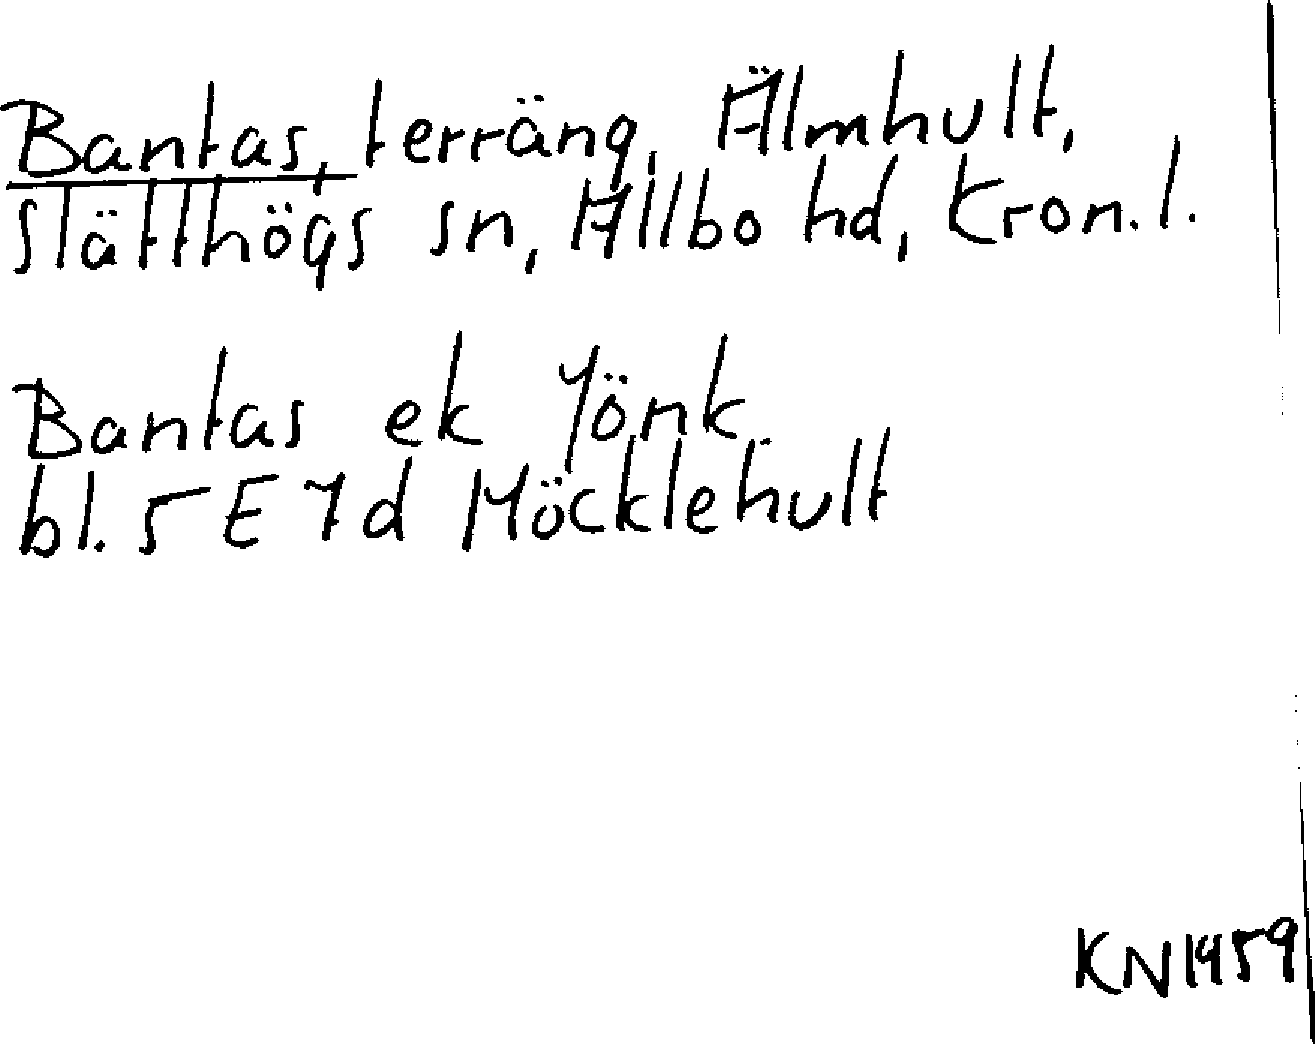 Bantas, terräng, Älmhult,
Slätthögs sn, Allbo hd, Kron.l.
Bantas ek Jönk.
bl. 5 E 7 d Möcklehult
KN1959